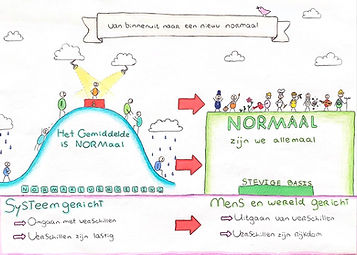 Van binnenuit naar een nieuw normaal
Het Gemiddelde
is NORMaal
NORMAALVERDELING
NORMAAL
zijn we allemaal
STEVIGE BASIS
Systeemgericht
Omgaan met verschillen
Verschillen zijn lastig
Mens en wereld gericht
Uitgaan van verschillen
Verschillen zijn rijkdom